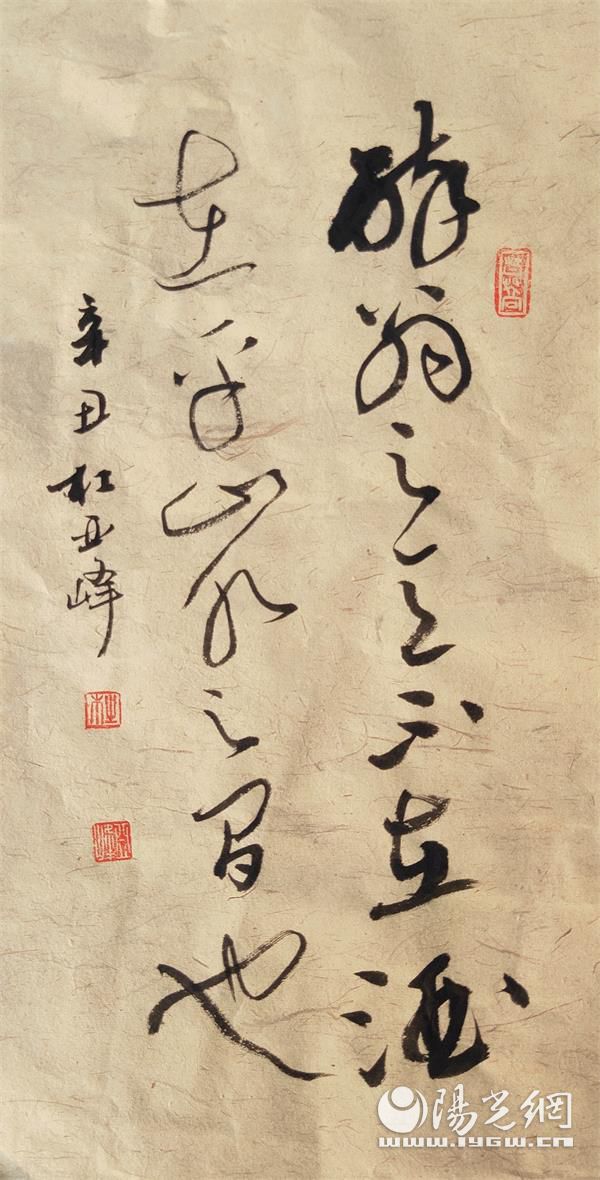 醉翁之意不在酒
在乎山水之间也
辛丑杜亚峰
杜
亚峰
陽光網
www.iygw.cn